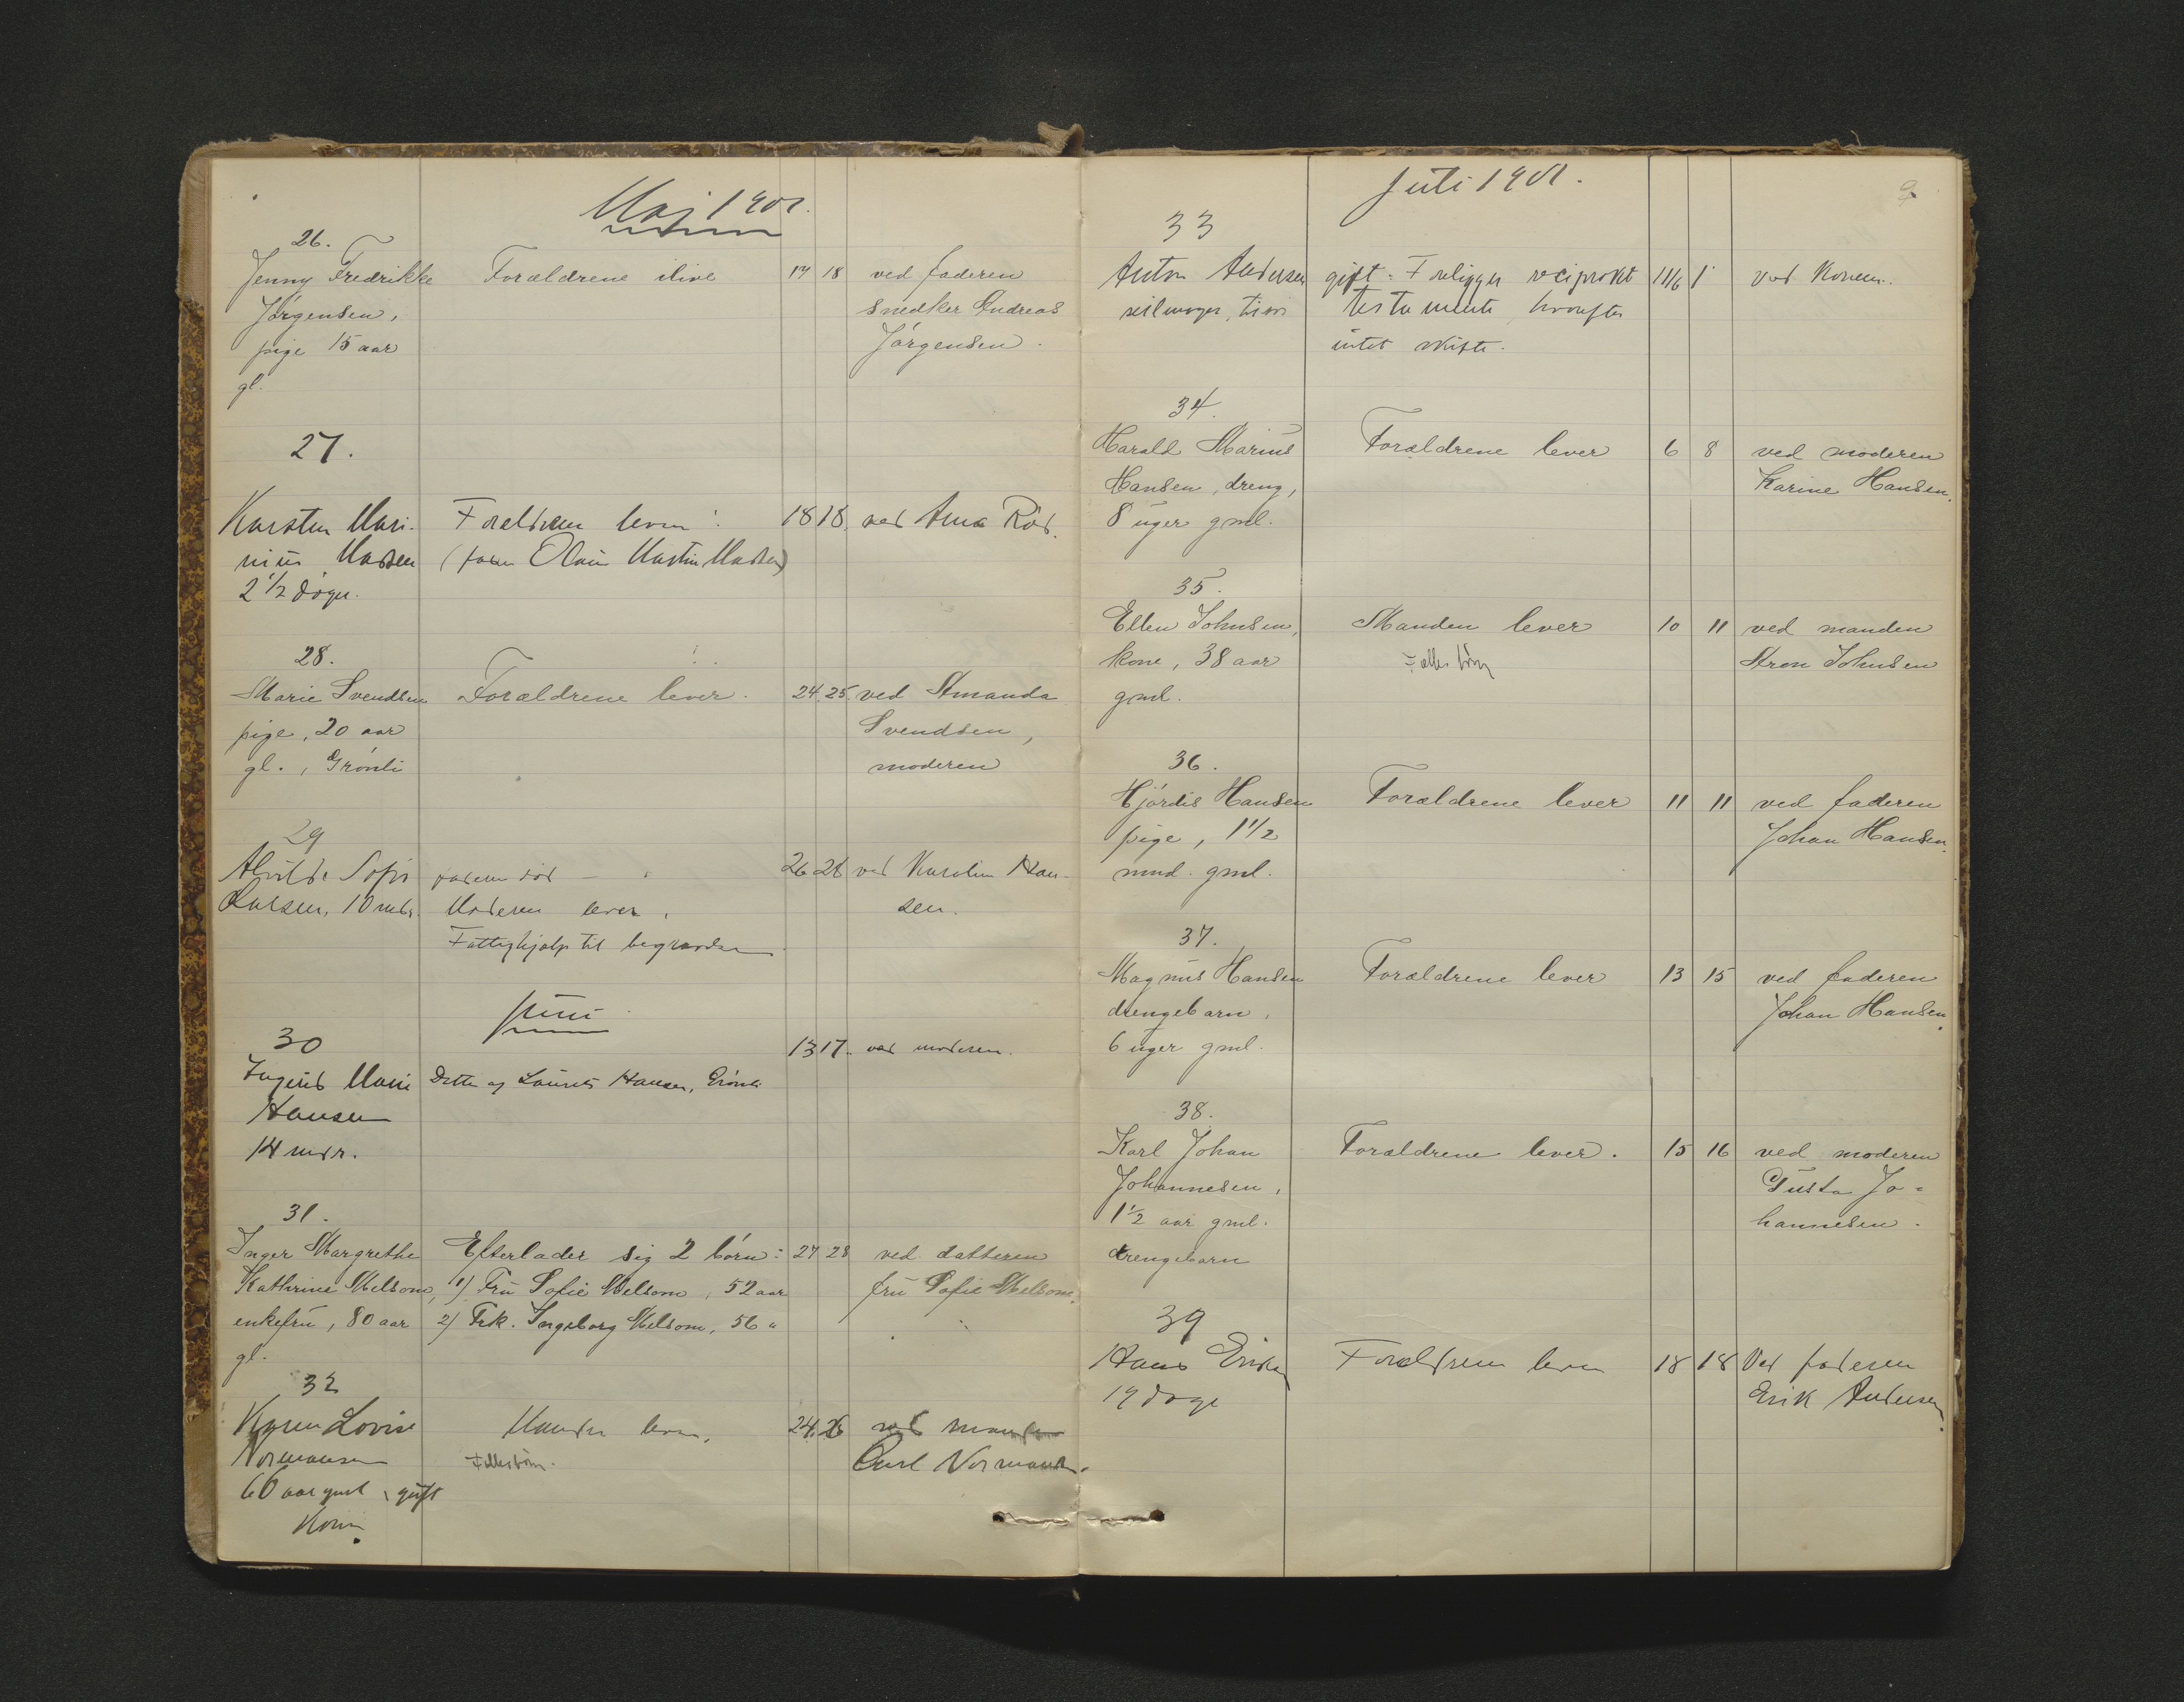 Maj 1901.
26.
Jenny Fredrikke
Jørgensen,
pige 15 aar
gl.
Forældrene ilive
17 18
ved faderen
snedker Andreas
Jørgensen.
27.
Karsten Mari-
nius Madsen
2 1/2 døgn.
Forældrene lever.
(faren Olaus Martin Madsen)
18 18.
ved Anna Rød.
28.
Marie Svendsen
pige, 20 aar
gl., Grønli
Forældrene lever.
24. 25.
ved Amanda
Svendsen,
moderen
29
Alvilde Sofie
Larsen, 10 mdr.
faderen død
Moderen lever.
Fattighjælp til begravelsen
26 28
ved Karoline Han-
sen.
Juni
30
Ingrid Marie
Hansen
14 mdr.
Datter af Laurits Hansen, Grønli
13 17.
ved moderen.
31.
Inger Margrethe
Kathrine Melsom,
enkefru, 80 aar
gl.
Efterlader sig 2 børn:
1) Fru Sofie Melsom, 52 aar
2) Frk. Ingeborg Melsom, 56 "
27 28
ved datteren
fru Sofie Melsom.
32
Karen Lovise
Normansen
60 aar gml, gift
Kone.
Manden lever.
Fællesbørn.
24. 26
ved manden
Carl Norman
Juli 1901.
9
33
Anton Andersen
seilmager,
gift. Foreligger reciprokt
testamente, hvorefter
intet skifte.
11/6 1
ved Konen.
34.
Harald Marius
Hansen, dreng,
8 uger gml.
Forældrene lever
6 8
ved moderen
Karine Hansen.
35.
Ellen Johnsen,
kone, 38 aar
gml.
Manden lever
Fælles børn
10 11
ved manden
Aron Johnsen
36.
Hjørdis Hansen
pige, 1 1/2
mnd. gml.
Forældrene lever
11 11
ved faderen
Johan Hansen.
37.
Magnus Hansen
drengebarn,
6 uger gml.
Forældrene lever
13 15
ved faderen
Johan Hansen.
38.
Karl Johan
Johannesen,
1 1/2 aar gml.
drengebarn
Forældrene lever.
15 16
ved moderen
Gusta Jo-
hannesen.
39
Hans
19 dage
Forældrene lever
18 18
Ved faderen
Erik Andersen.